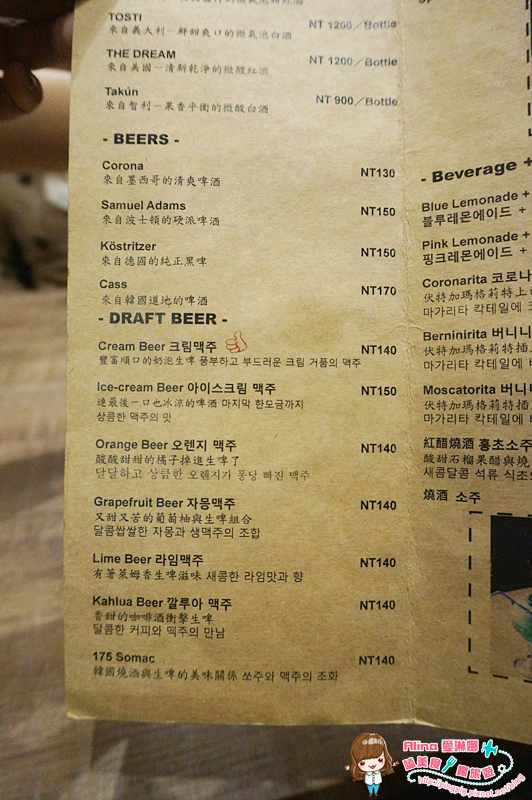 TOSTI NT 1200/Bottle
來自義大利－鮮甜爽口的微氣泡白酒
THE DREAM NT 1200/Bottle
來自美國－清新乾淨的微酸紅酒
Takún NT 900/Bottle
來自智利－果香平衡的微酸白酒
- BEERS -
Corona NT130
來自墨西哥的清爽啤酒
Samuel Adams NT150
來自波士頓的硬派啤酒
Köstritzer NT150
來自德國的純正黑啤
Cass NT170
來自韓國道地的啤酒
- DRAFT BEER -
Cream Beer 크림맥주 NT140
豐富順口的奶泡生啤 풍부하고 부드러운 크림 거품의 맥주
Ice-cream Beer 아이스크림 맥주 NT150
連最後一口也冰涼的啤酒 마지막 한모금까지
상큼한 맥주의 맛
Orange Beer 오렌지 맥주 NT140
酸酸甜甜的橘子掉進生啤了
단달하고 상큼한 오렌지가 퐁당 빠진 맥주
Grapefruit Beer 자몽맥주 NT140
又甜又苦的葡萄柚與生啤組合
달콤쌉쌀한 자몽과 생맥주의 조합
Lime Beer 라임맥주 NT140
有著萊姆香生啤滋味 새콤한 라임맛과 향
Kahlua Beer 깔루아 맥주 NT140
香甜的咖啡酒衝擊生啤
달콤한 커피와 맥주의 만남
175 Somac NT140
韓國燒酒與生啤的美味關係 쏘주와 맥주의 조화
- Beverage +
Blue Lemonade +
블루레몬에이드 +
Pink Lemonade +
핑크레몬에이드 +
Coronarita 코로나
伏特加瑪格莉特上
마가리타 칵테일에
Berninirita 버니니
伏特加瑪格莉特插
마가리타 칵테일에
Moscatorita 버니
伏特加瑪格莉特插
마가리타 칵테일에
紅醋燒酒 홍초소주
酸甜石榴果醋與燒
새콤달콤 석류 식초
燒酒 소주
Alina 愛琳娜
嗑美食 瘋旅遊